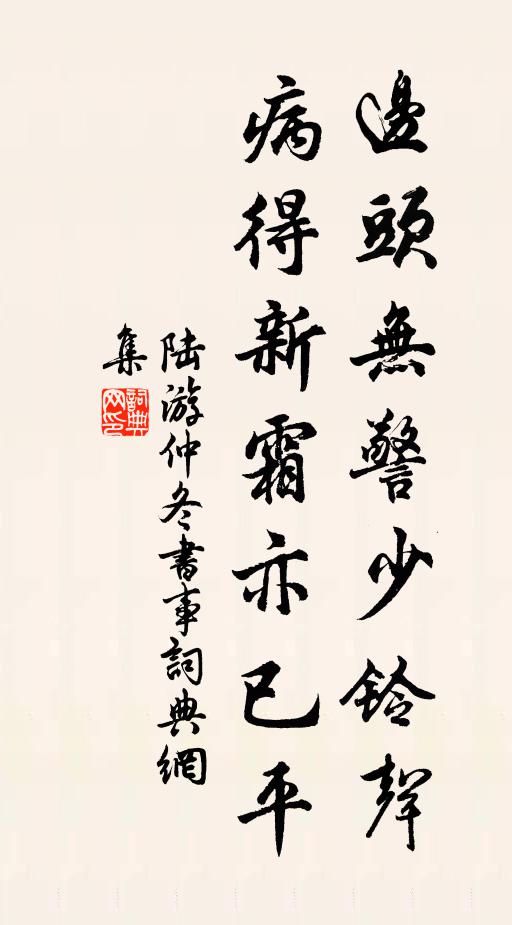 邊頭無警少鈴聲
病得新霜亦已平
陸游仲冬書事詞典網
集
詞典网印